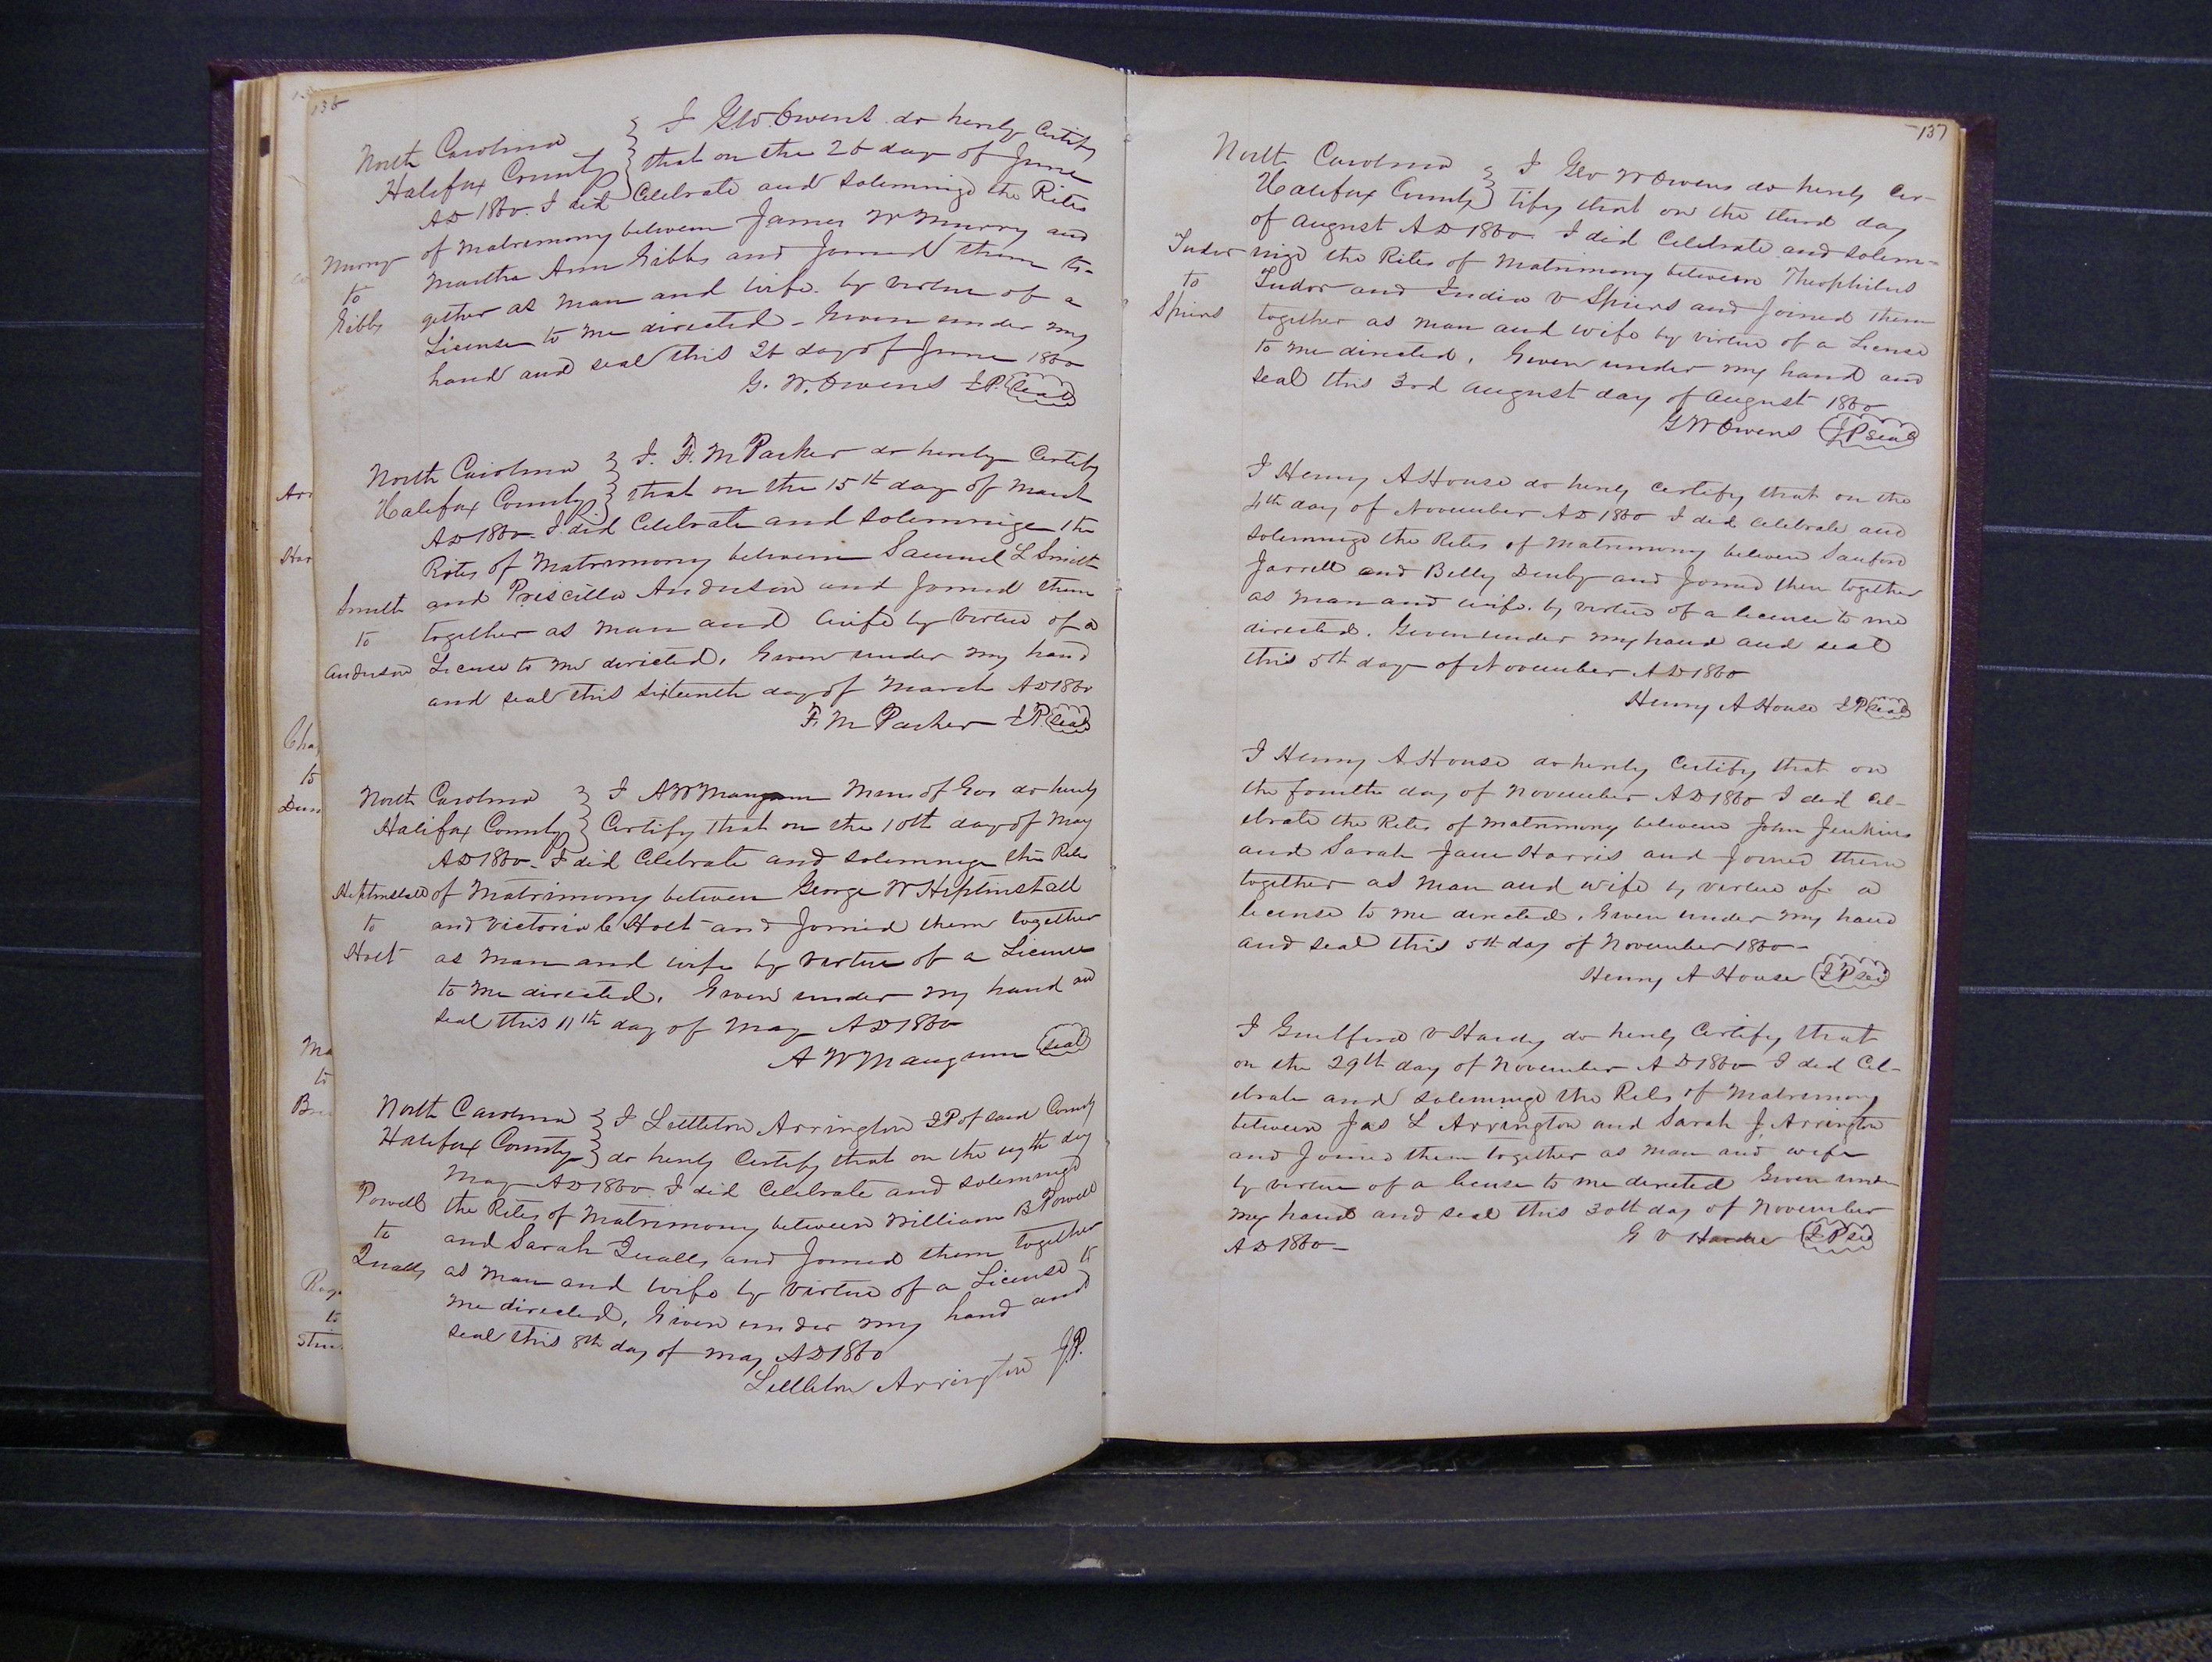 136
North Carolina } I Geo. Owens do hereby Certify
Halifax County } that on the 26 day of June
AD 1860. I did Celebrate and Solemnize the Rites
of Matrimony between James W Murry and
Murry
to
Gibbs
Martha Ann Gibbs and Joined them to-
gether as Man and Wife by virtue of a
License to me directed - Given under my
hand and seal this 26 day of June 1860
G. W. Owens J.P. (Seal)
North Carolina } I. F. M Parker do hereby Certify
Halifax County } that on the 15th day of March
AD 1860. I did Celebrate and Solemnize the
Rites of Matrimony between Samuel L Smith
Smith
to
Anderson
and Priscilla Anderson and Joined them
together as Man and Wife by Virtue of a
License to me directed. Given under my hand
and seal this sixteenth day of March AD 1860
F. M Parker J.P. (Seal)
North Carolina } I A W Mangum Min of Gos do hereby
Halifax County } Certify that on the 10th day of May
AD 1860. I did Celebrate and Solemnize the Rites
Heptinstall
to
Holt
of Matrimony between George W Heptinstall
and Victoria C Holt and Joined them together
as Man and wife by virtue of a License
to me directed. Given under my hand and
seal this 11th day of May AD 1860
A W Mangum (Seal)
North Carolina } I Littleton Arrington JP of said County
Halifax County } do hereby Certify that on the day
May AD 1860. I did Celebrate and Solemnize
Powell
to
Qualls
the Rites of Matrimony between William B Powell
and Sarah Qualls and Joined them together
as Man and Wife by Virtue of a License to
me directed. Given under my hand and
seal this 8th day of May AD 1860
Littleton Arrington J.P.
Arr
Har
Cha
to
Dun
Ma
to
to
137
North Carolina } I Geo W Owens do hereby Cer-
Halifax County } tify that on the third day
of August AD 1860. I did Celebrate and Solem-
Tudor
to
Spiers
nize the Rites of Matrimony between Theophilus
Tudor and India V Spiers and Joined them
together as man and wife by virtue of a License
to me directed. Given under my hand and
seal this 3rd August day of August 1860
G W Owens (JP Seal)
I Henry A House do hereby Certify that on the
4th day of November AD 1860 I did Celebrate and
Solemnize the Rites of Matrimony between Sanford
Jarrell and Betty Denby and Joined them together
as Man and wife. by virtue of a license to me
directed. Given under my hand and seal
this 5th day of November AD 1860
Henry A House JP (Seal)
I Henry A House do hereby Certify that on
the fourth day of November AD 1860 I did Cel-
ebrate the Rites of Matrimony between John Jenkins
and Sarah Jane Harris and Joined them
together as Man and wife by virtue of a
license to me directed. Given under my hand
and seal this 5th day of November 1860-
Henry A House (JP Seal)
I Guilford V Hardy do hereby Certify that
on the 29th day of November AD 1860 I did Cel-
ebrate and Solemnize the Rites of Matrimony
between Jas L Arrington and Sarah J. Arrington
and Joined them together as Man and wife
by virtue of a license to me directed Given under
my hand and seal this 30th day of November
AD 1860- G V (JP Seal)